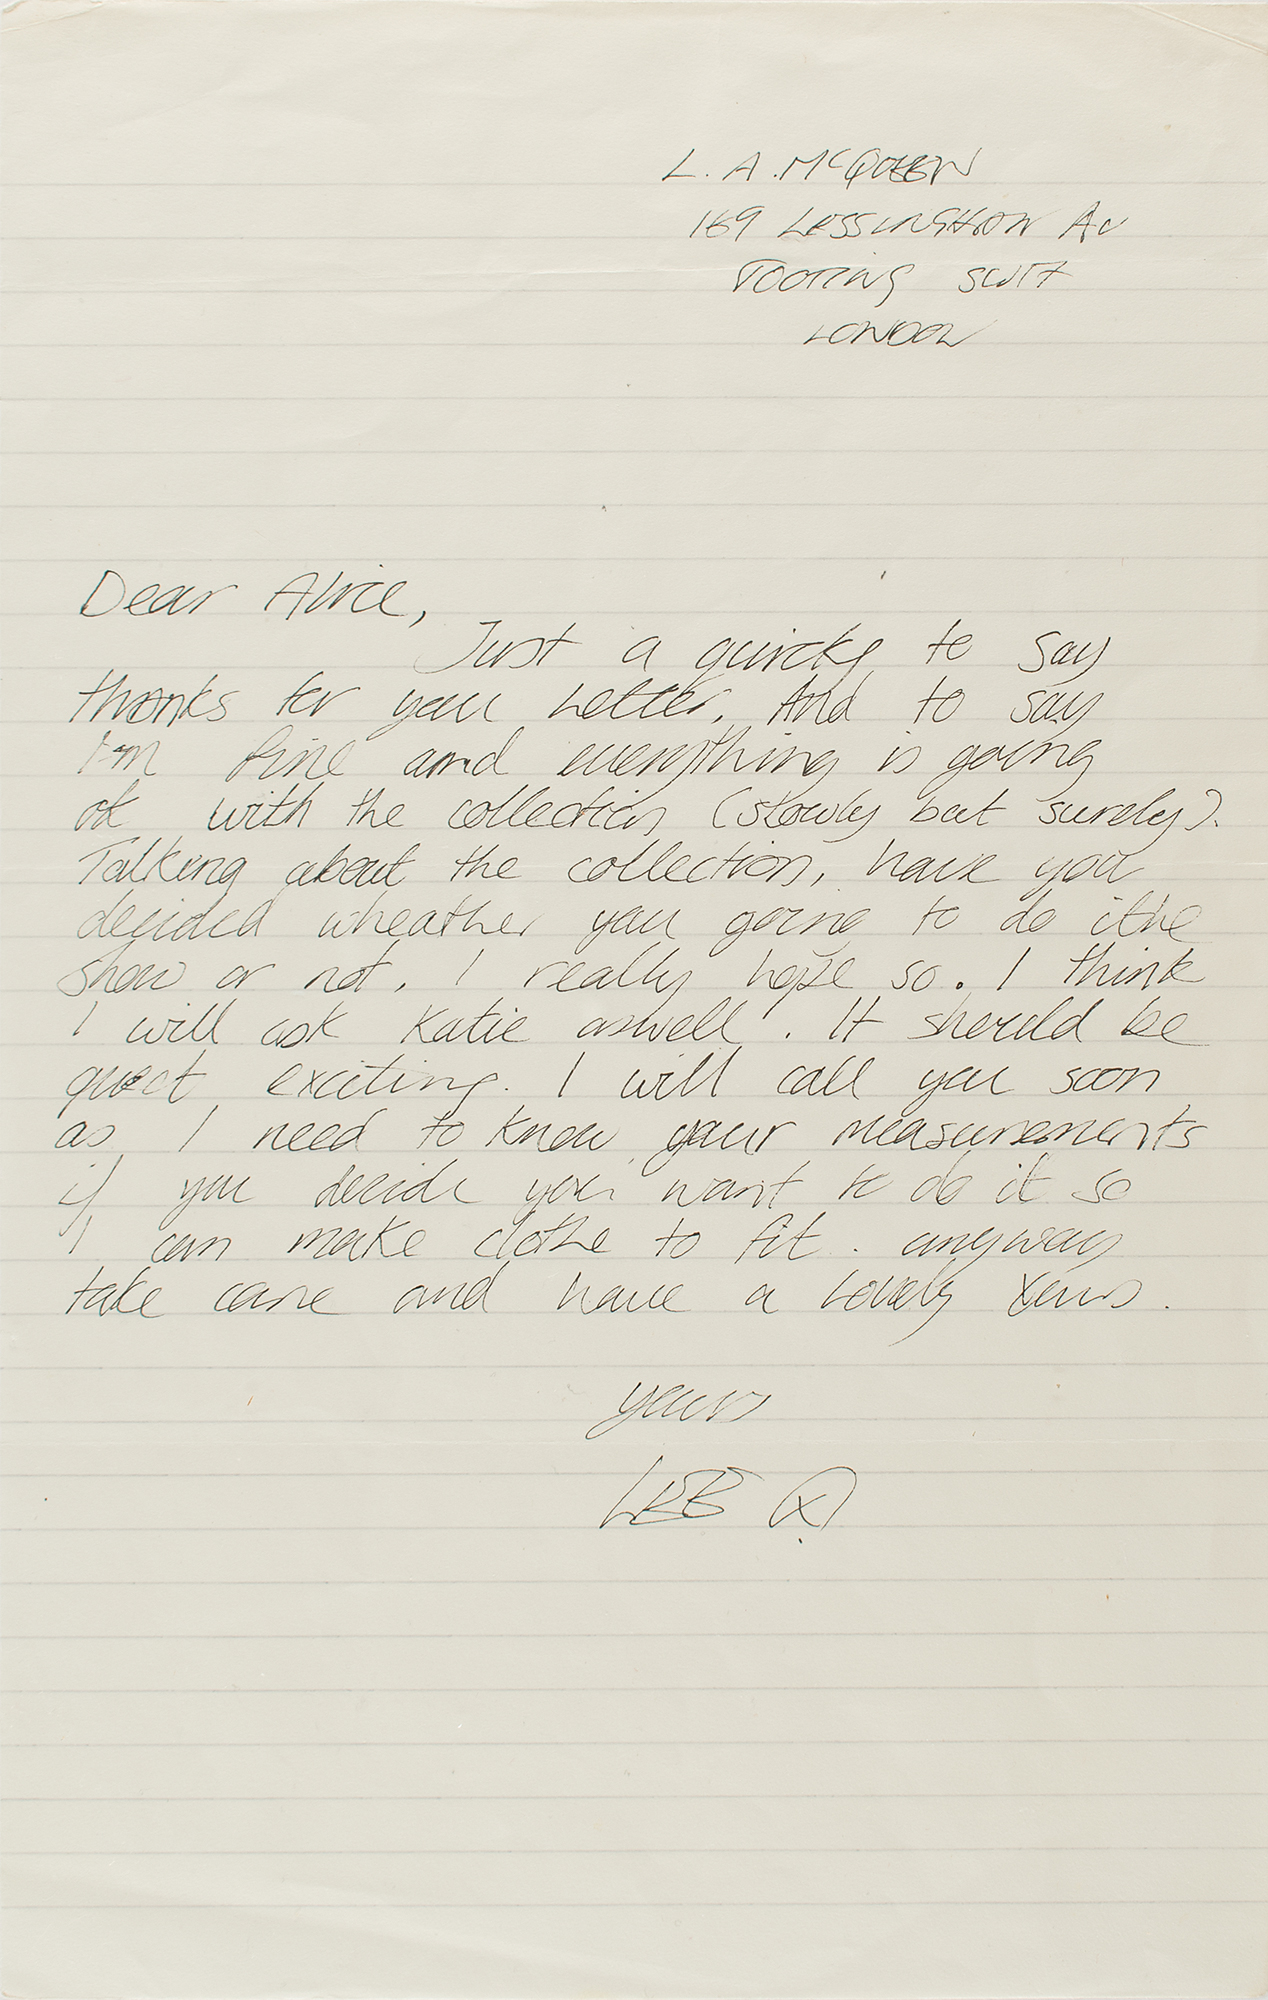 L. A. McQUEEN
169 LESSINGHAM AV
TOOTING SW17
LONDON
Dear Alice,
Just a quicky to say
thanks for you letter. And to say
I'm fine and everything is going
ok with the collection (slowly but surely).
Talking about the collection, have you
decided wheather you going to do the
show or not. I really hope so. I think
I will ask Katie aswell. It should be
exciting. I will call you soon
as I need to know your measurements
if you decide you want to do it so
I can make clothe to fit. anyway
take care and have a lovely Xmas.
yours
LEE